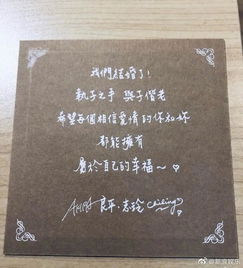 我們結婚了!
執子之手 與子偕老
希望每個相信愛情的你和妳
都能擁有
屬於自己的幸福～♡
AKIRA 良平·志玲 chiling♡
@新浪娱乐